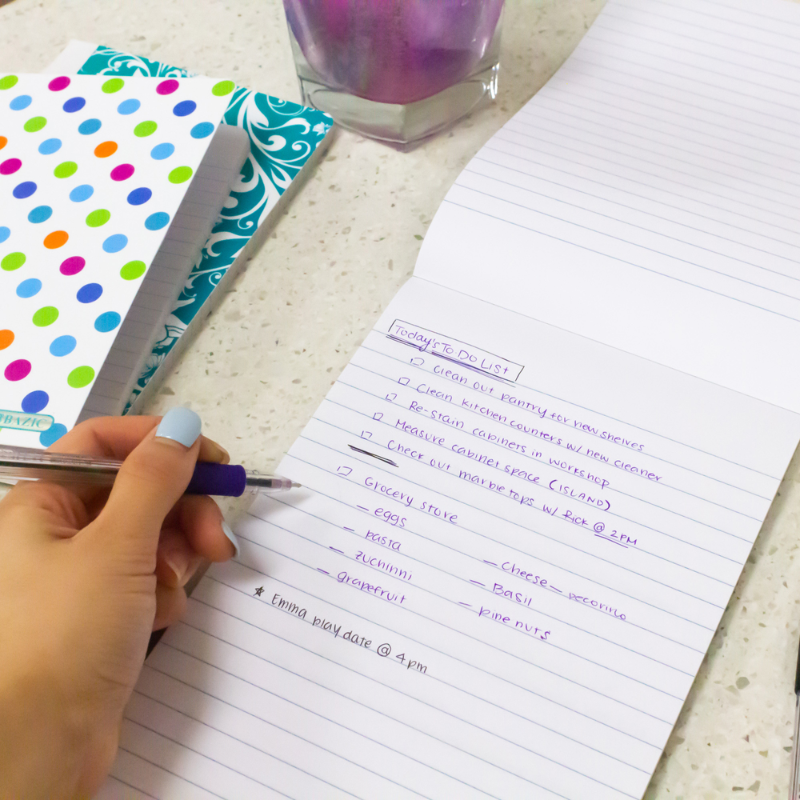 Today's To Do List
Clean out pantry for new shelves
Clean kitchen counters w/ new cleaner
Re-stain cabinets in workshop
Measure cabinet space (ISLAND)
Check out marble tops w/ Rick @ 2PM
Grocery store
– eggs
– pasta
– zuchinni
– grapefruit
– cheese – pecorino
– Basil
– pine nuts
★ Emma play date @ 4pm
BAZIC